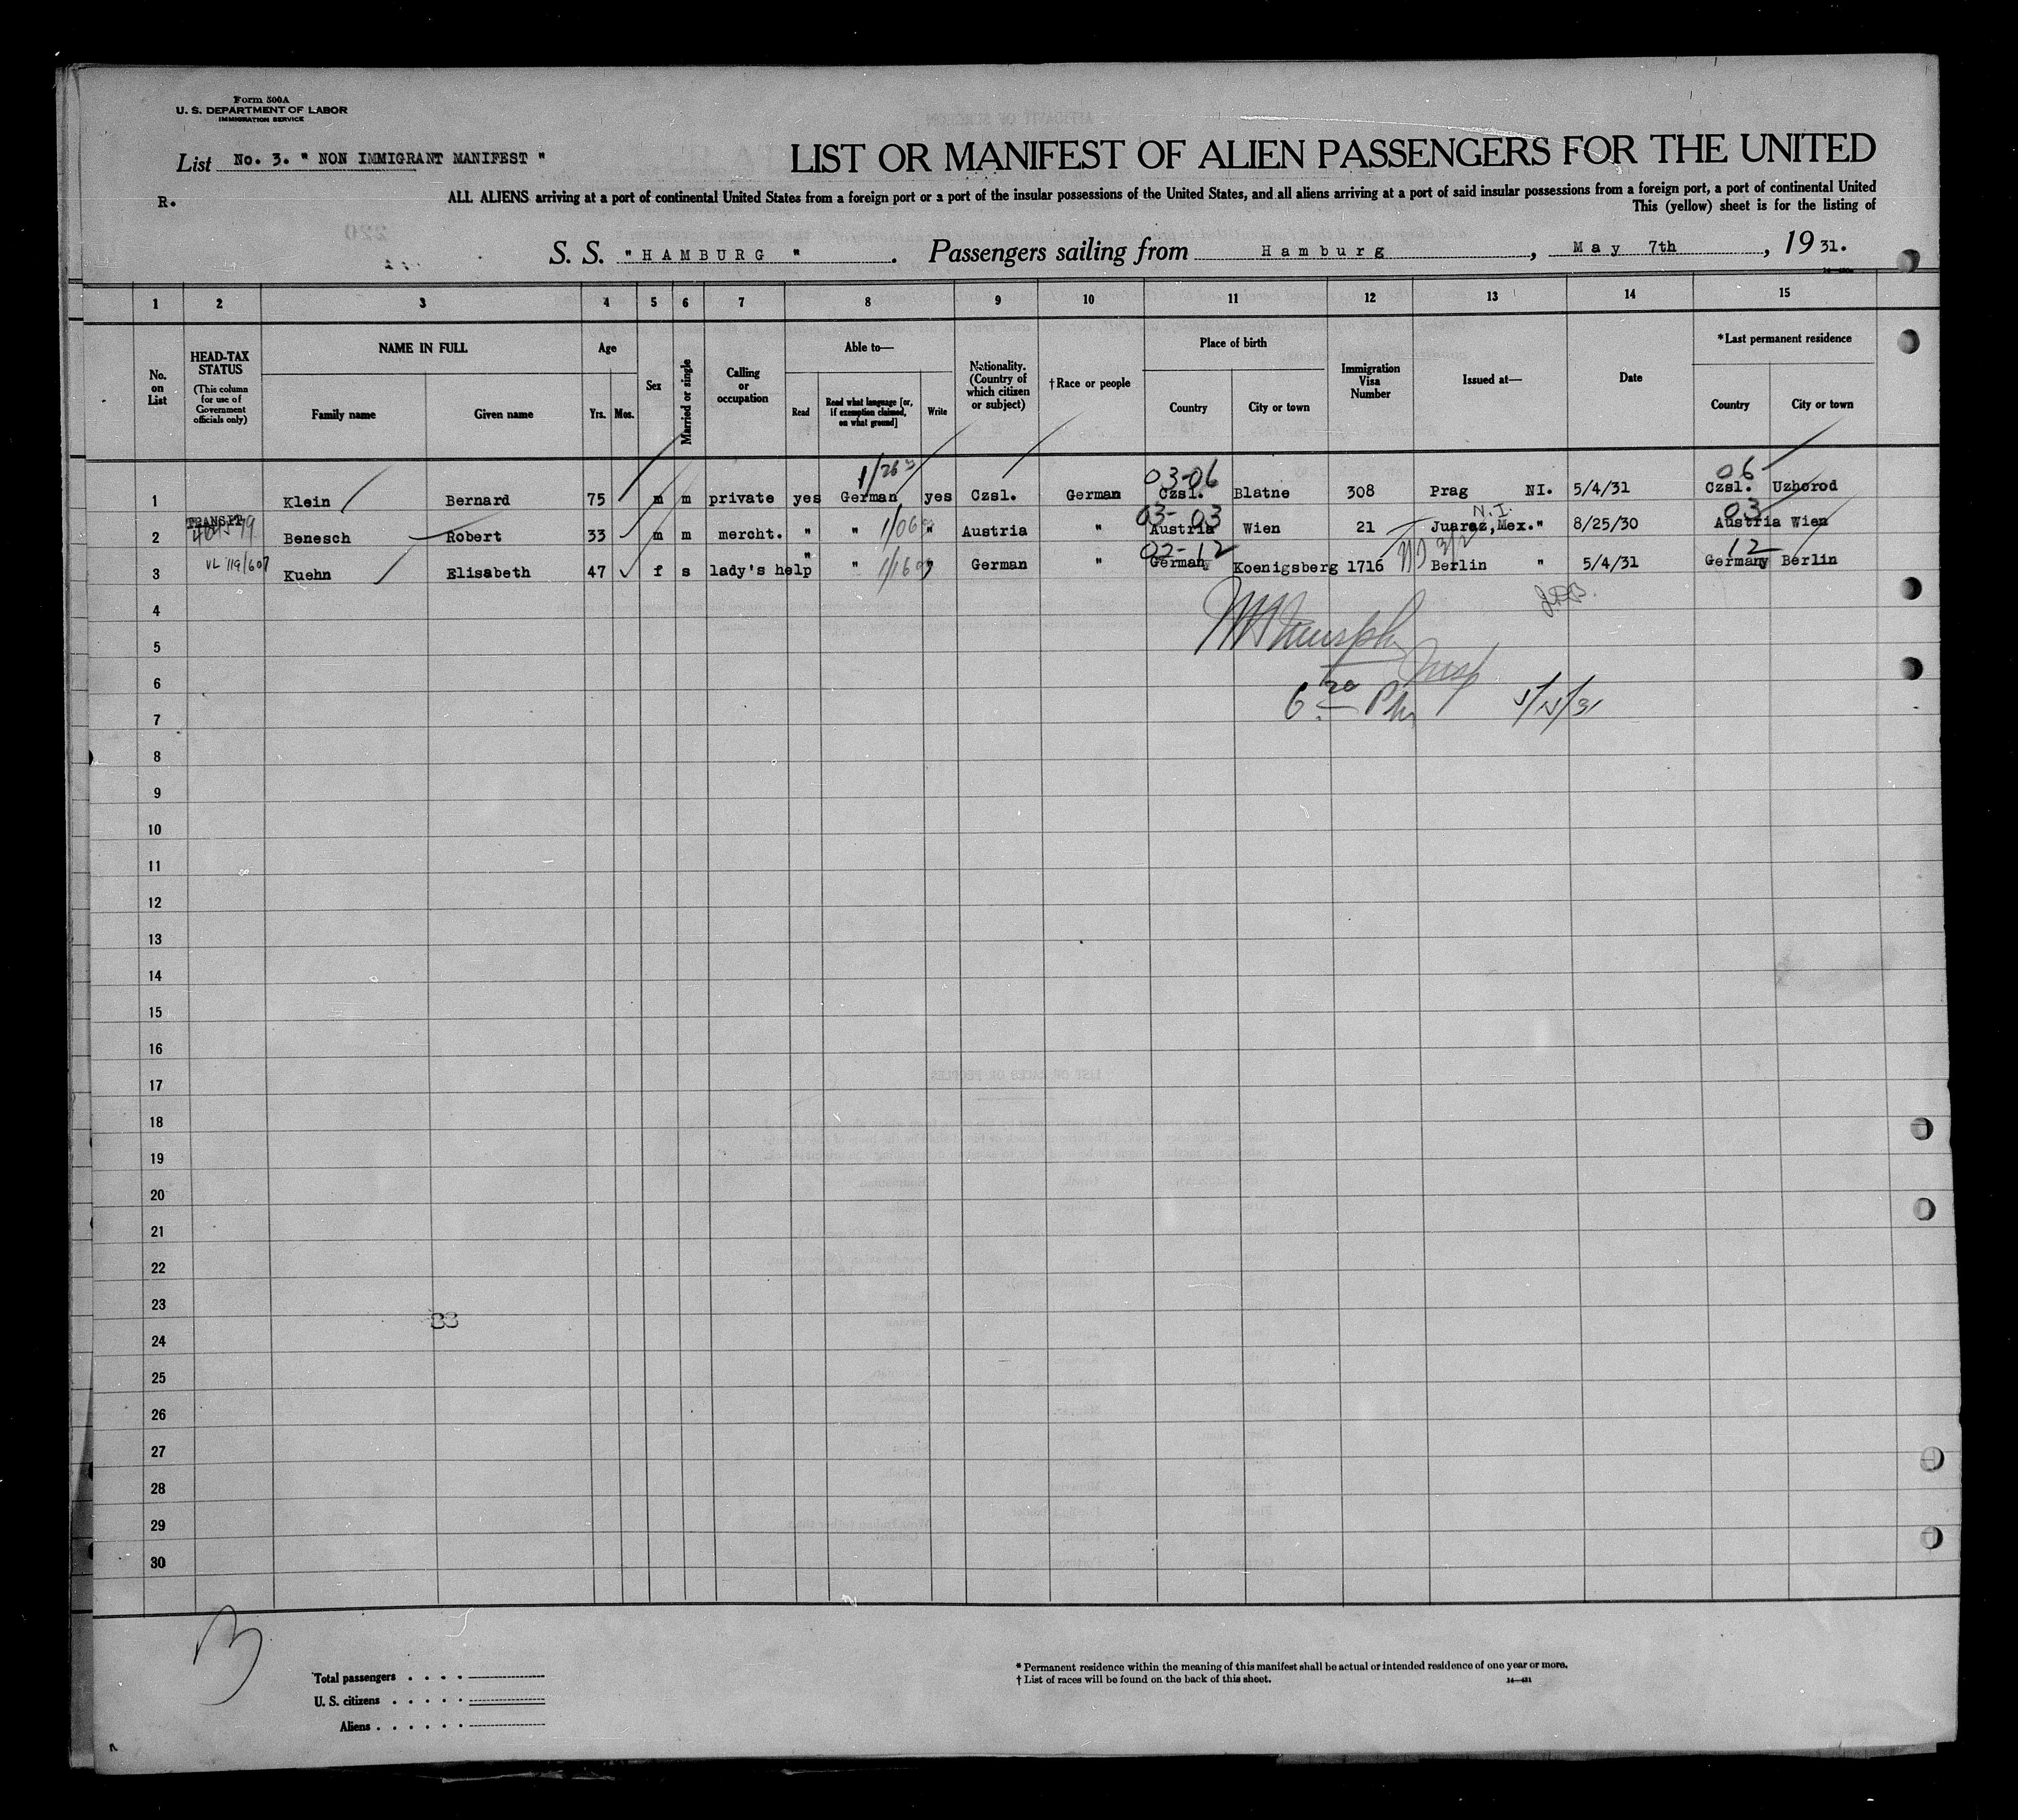 Form 500A
U. S. DEPARTMENT OF LABOR
IMMIGRATION SERVICE
List No. 3. " NON IMMIGRANT MANIFEST "
LIST OR MANIFEST OF ALIEN PASSENGERS FOR THE UNITED
R.
ALL ALIENS arriving at a port of continental United States from a foreign port or a port of the insular possessions of the United States, and all aliens arriving at a port of said insular possessions from a foreign port, a port of continental United
This (yellow) sheet is for the listing of
220
S. S. "HAMBURG". Passengers sailing from Hamburg, May 7th, 1931.
1 2 3 4 5 6 7 8 9 10 11 12 13 14 15
No. on List
HEAD-TAX STATUS (This column for use of Government officials only)
NAME IN FULL
Family name
Given name
Age
Yrs.
Mos.
Sex
Married or single
Calling or occupation
Able to—
Read
Read what language [or, if exemption claimed, on what ground]
Write
Nationality. (Country of which citizen or subject)
†Race or people
Place of birth
Country
City or town
Immigration Visa Number
Issued at—
Date
*Last permanent residence
Country
City or town
03-06 06
1 Klein Bernard 75 m m private yes German yes Czsl. German Czsl. Blatne 308 Prag NI. 5/4/31 Czsl. Uzhorod
TRANSIT 03-03 N.I. 03
2 Benesch Robert 33 m m mercht. " " " Austria " Austria Wien 21 Juarez, Mex." 8/25/30 Austria Wien
02-12 12
3 Kuehn Elisabeth 47 f s lady's help " " " German " Germany Koenigsberg 1716 Berlin " 5/4/31 Germany Berlin
4
5
6
7
8
9
10
11
12
13
14
15
16
17
18
19
20
21
22
23
24
25
26
27
28
29
30
33
3
Total passengers
U. S. citizens
Aliens
* Permanent residence within the meaning of this manifest shall be actual or intended residence of one year or more.
† List of races will be found on the back of this sheet.